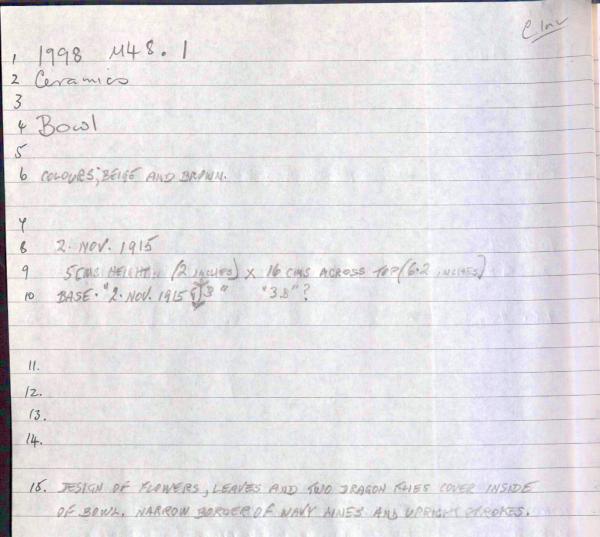 C Inv
1 1998 M48.1
2 Ceramics
3
4 Bowl
5
6 COLOURS; BEIGE AND BROWN.
7
8 2. NOV. 1915
9 5 CMS HEIGHT. (2 INCHES) X 16 CMS ACROSS TOP (6.2 INCHES)
10 BASE. "2. NOV. 1915 3" "3.B"?
11.
12.
13.
14.
15. DESIGN OF FLOWERS, LEAVES AND TWO DRAGON FLIES COVER INSIDE
OF BOWL. NARROW BORDER OF NAVY LINES AND UPRIGHT STROKES.